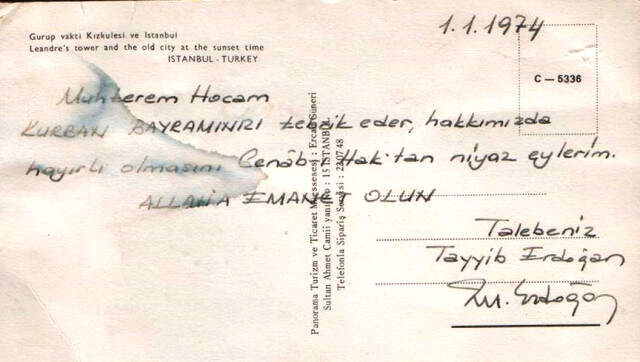 Gurup vakti Kızkulesi ve Istanbul
Leandre's tower and the old city at the sunset time
ISTANBUL - TURKEY
1.1.1974
C — 5336
Muhterem Hocam
KURBAN BAYRAMINRI tebrik eder, hakkımızda
hayırlı olmasını Cenâb-ı Hak'tan niyaz eylerim.
ALLAHA EMANET OLUN
Talebeniz
Tayyib Erdoğan
Erdoğan
Panorama Turizm ve Ticaret Müessesesi : Ercan Güneri
Sultan Ahmet Camii yanı No : 15 İSTANBUL
Telefonla Sipariş Servisi : 220748